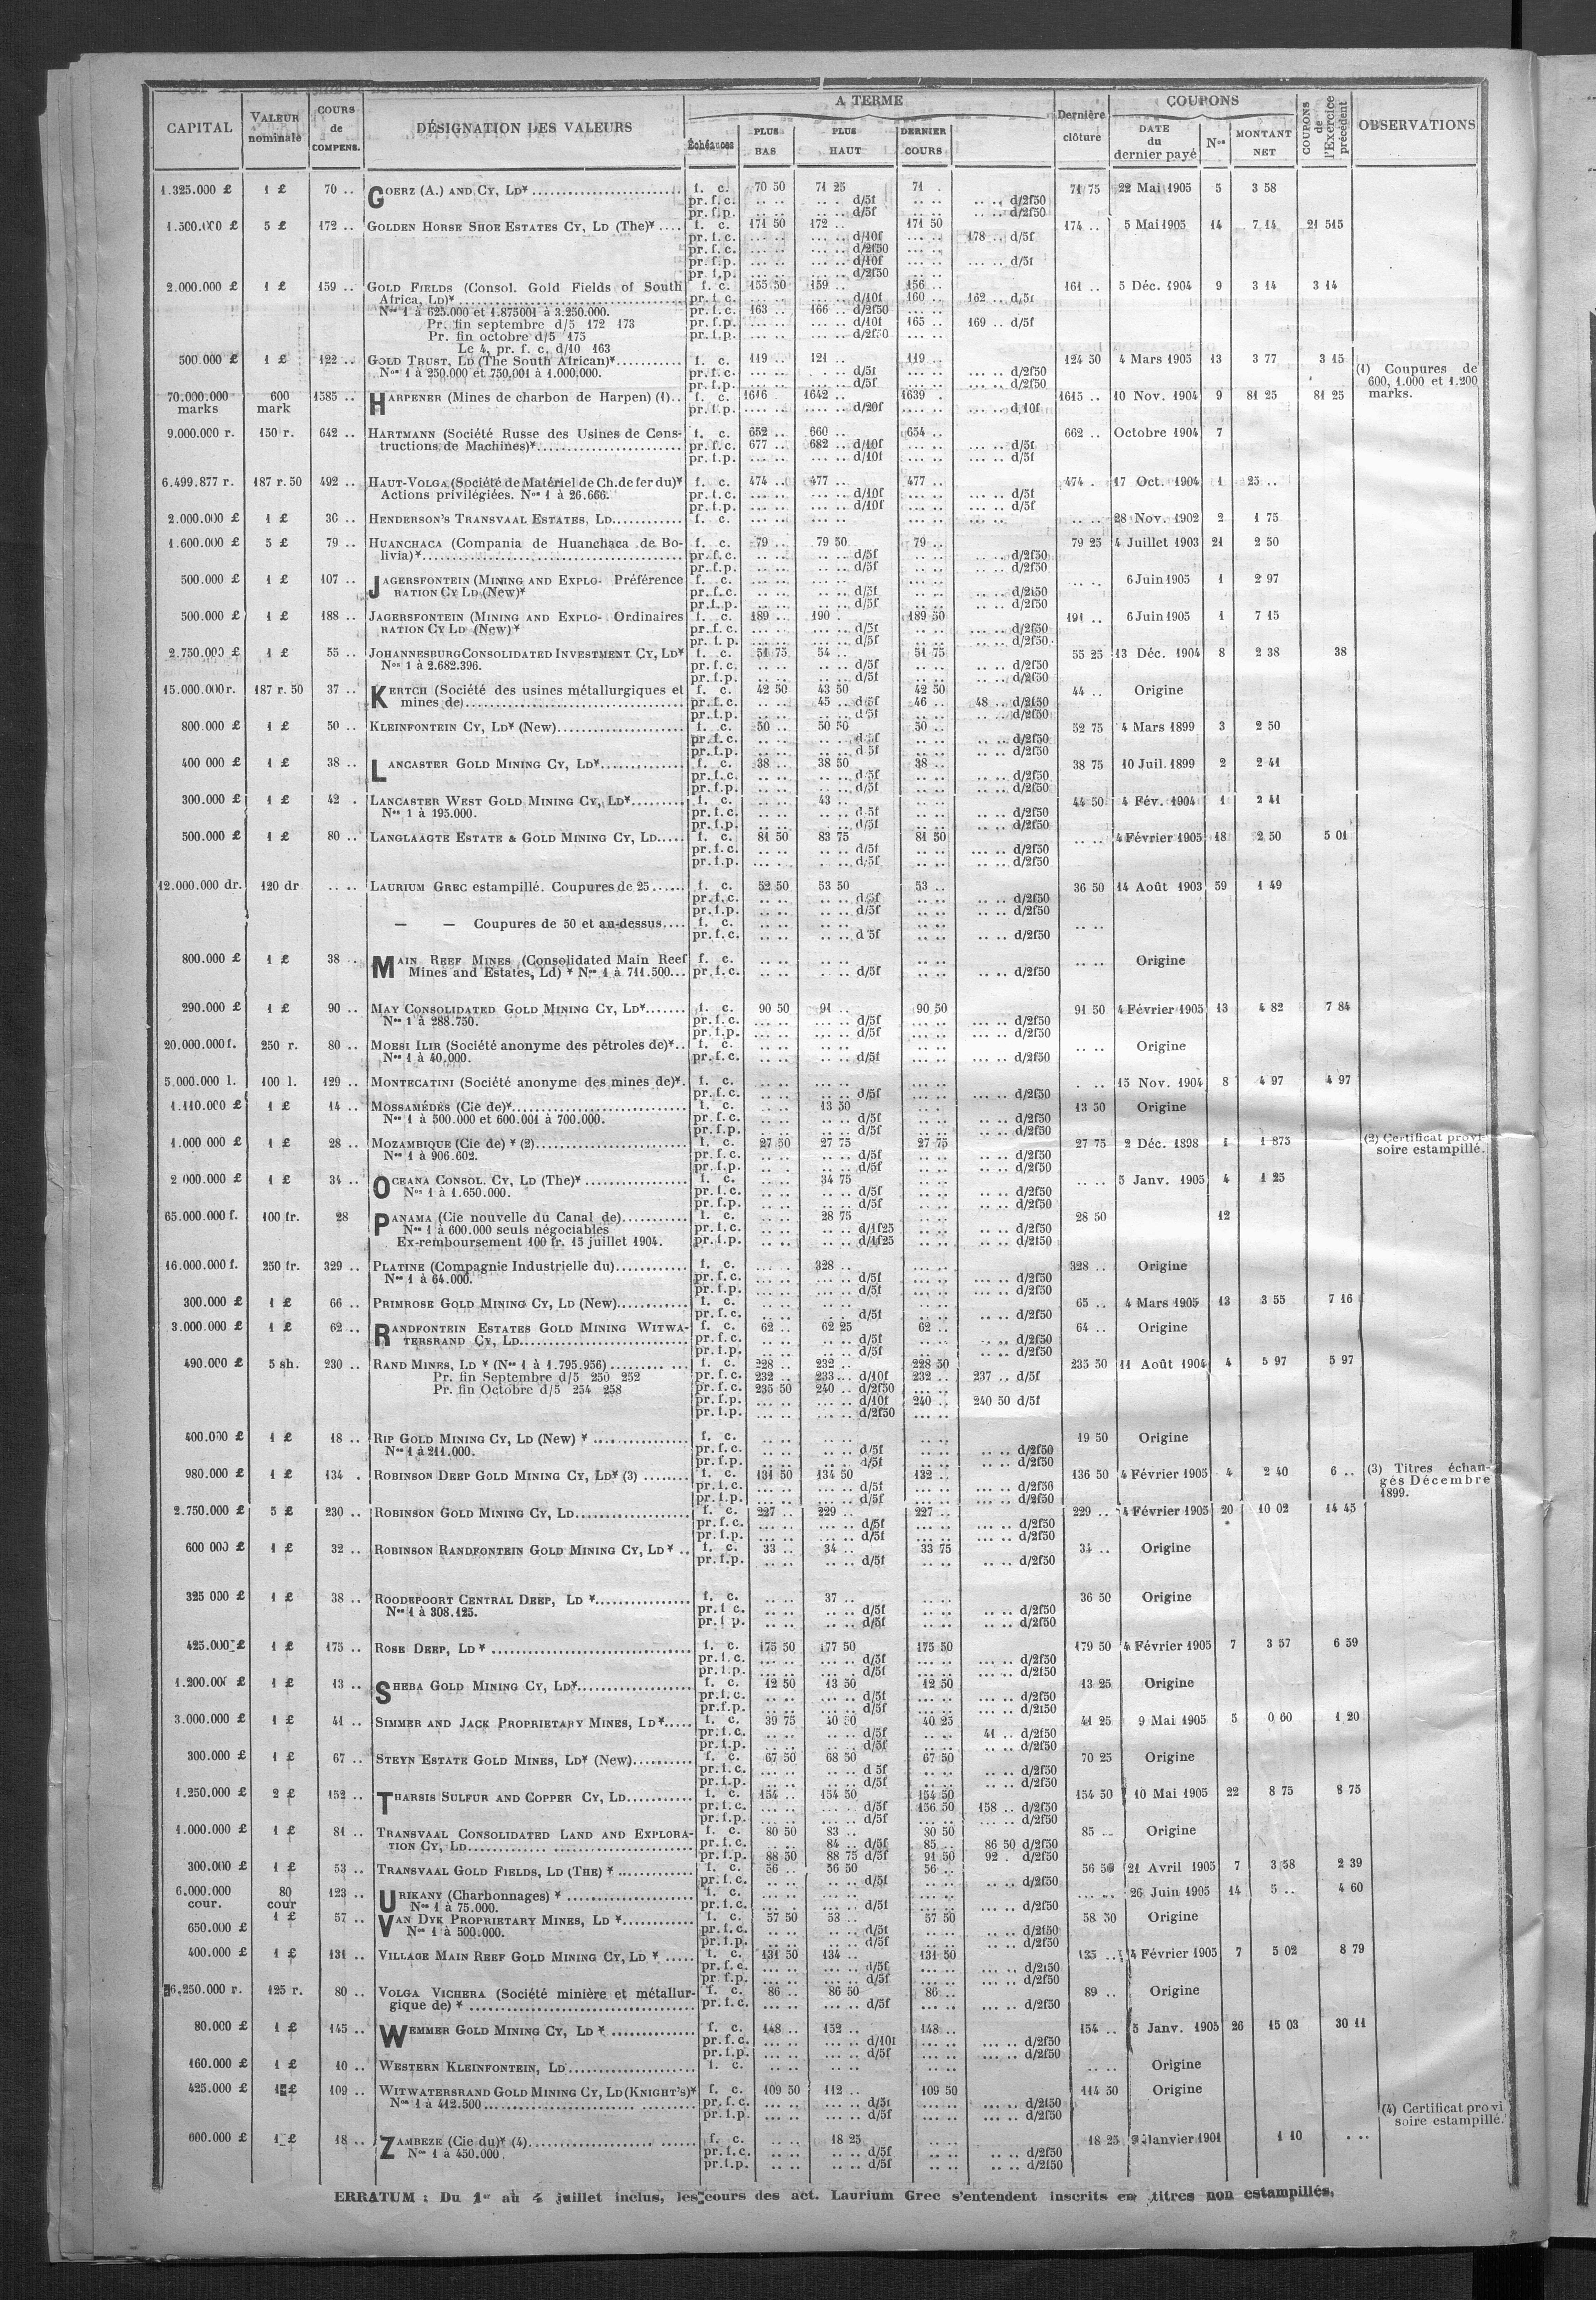 A TERME
COUPONS
CAPITAL VALEUR nominale COURS de COMPENS. DÉSIGNATION DES VALEURS Échéances PLUS BAS PLUS HAUT DERNIER COURS Dernière clôture DATE du dernier payé Nos MONTANT NET COUPONS de l'Exercice précédent OBSERVATIONS
1.325.000 £ 1 £ 70 .. GOERZ (A.) AND CY, LD* f. c. 70 50 71 25 71 . 71 75 22 Mai 1905 5 3 58
pr. f. c. .. .. .. . d/5f .. .. .. .. d/2f50
pr. f. p. .. .. .. .. d/5f .. .. .. .. d/2f50
1.500.000 £ 5 £ 172 .. GOLDEN HORSE SHOE ESTATES CY, LD (The)* f. c. 171 50 172 .. 171 50 174 .. 5 Mai 1905 14 7 14 21 515
pr. f. c. ... .. ... .. d/10f ... .. 178 .. d/5f
pr. f. c. ... .. ... .. d/2f50 ... ..
pr. f. p. ... .. ... .. d/10f ... .. d/5f
pr. f. p. ... .. ... .. d/2f50 ... ..
2.000.000 £ 1 £ 159 .. GOLD FIELDS (Consol. Gold Fields of South f. c. 155 50 159 .. 156 .. 161 .. 5 Déc. 1904 9 3 14 3 14
Africa, LD)* pr. f. c. ... .. ... .. d/10f 160 .. 162 .. d/5f
Nos 1 à 625.000 et 1.875001 à 3.250.000. pr. f. c. 163 .. 166 .. d/2f50 ... ..
Pr. fin septembre d/5 172 173 pr. f. p. ... .. ... .. d/10f 165 .. 169 .. d/5f
Pr. fin octobre d/5 175 pr. f. p. ... .. ... .. d/2f50 ... ..
Le 4, pr. f. c. d/10 163
500.000 £ 1 £ 122 .. GOLD TRUST, LD (The South African)* f. c. 119 .. 121 .. 119 .. 124 50 4 Mars 1905 13 3 77 3 15
Nos 1 à 250.000 et 750.001 à 1.000.000. pr. f. c. ... .. ... .. d/5f ... .. ... .. d/2f50 (1) Coupures de
pr. f. p. ... .. ... .. d/5f ... .. ... .. d/2f50 600, 1.000 et 1.200
70.000.000 600 1585 .. HARPENER (Mines de charbon de Harpen) (1).. f. c. 1616 1642 .. 1639 . 1615 .. 10 Nov. 1904 9 81 25 81 25 marks.
marks mark pr. f. p. .... .. .... .. d/20f .... .. .... .. d/10f
9.000.000 r. 150 r. 642 .. HARTMANN (Société Russe des Usines de Cons- f. c. 652 .. 660 .. 654 .. 662 .. Octobre 1904 7
tructions de Machines)* pr. f. c. 677 .. 682 .. d/10f ... .. ... .. d/5f
pr. f. p. ... .. ... .. d/10f ... .. ... .. d/5f
6.499.877 r. 187 r. 50 492 .. HAUT-VOLGA (Société de Matériel de Ch. de fer du)* f. c. 474 .. 477 .. 477 .. 474 . 17 Oct. 1904 1 25 ..
Actions privilégiées. Nos 1 à 26.666. pr. f. c. ... .. ... .. d/10f ... .. ... .. d/5f
pr. f. p. ... .. ... .. d/10f ... .. ... .. d/5f
2.000.000 £ 1 £ 36 .. HENDERSON'S TRANSVAAL ESTATES, LD f. c. ... .. ... .. ... .. ... .. .. .. 28 Nov. 1902 2 1 75
1.600.000 £ 5 £ 79 .. HUANCHACA (Compania de Huanchaca de Bo- f. c. 79 .. 79 50 79 .. 79 25 4 Juillet 1903 21 2 50
livia)* pr. f. c. .. .. .. .. d/5f .. .. .. .. d/2f50
pr. f. p. .. .. .. .. d/5f .. .. .. .. d/2f50
500.000 £ 1 £ 107 .. JAGERSFONTEIN (MINING AND EXPLO- Préférence f. c. ... .. ... .. ... .. .. .. 6 Juin 1905 1 2 97
RATION CY LD (New)* pr. f. c. ... .. .. .. d/5f .. .. .. .. d/2f50
pr. f. p. ... .. .. .. d/5f .. .. .. .. d/2f50
500.000 £ 1 £ 188 .. JAGERSFONTEIN (MINING AND EXPLO- Ordinaires f. c. 189 .. 190 . 189 50 191 .. 6 Juin 1905 1 7 15
RATION CY LD (New)* pr. f. c. ... .. ... .. d/5f .. .. ... .. d/2f50
pr. f. p. ... .. ... .. d/5f .. .. ... .. d/2f50
2.750.000 £ 1 £ 55 .. JOHANNESBURG CONSOLIDATED INVESTMENT CY, LD* f. c. 51 75 54 .. 51 75 55 25 13 Déc. 1904 8 2 38 38
Nos 1 à 2.682.396. pr. f. c. .. .. .. .. d/5f .. .. .. .. d/2f50
pr. f. p. .. .. .. .. d/5f .. .. .. .. d/2f50
15.000.000 r. 187 r. 50 37 .. KERTCH (Société des usines métallurgiques et f. c. 42 50 43 50 42 50 44 .. Origine
mines de) pr. f. c. .. .. 45 .. d/5f 46 .. 48 .. d/2f50
pr. f. p. .. .. .. .. d/5f .. .. .. .. d/2f50
800.000 £ 1 £ 50 .. KLEINFONTEIN CY, LD* (New) f. c. 50 .. 50 50 50 .. 52 75 4 Mars 1899 3 2 50
pr. f. c. .. .. .. .. d/5f .. .. .. .. d/2f50
pr. f. p. .. .. .. .. d/5f .. .. .. .. d/2f50
400 000 £ 1 £ 38 .. LANCASTER GOLD MINING CY, LD* f. c. 38 .. 38 50 38 .. 38 75 10 Juil. 1899 2 2 41
pr. f. c. .. .. .. .. d/5f .. .. .. .. d/2f50
pr. f. p. .. .. .. .. d/5f .. .. .. .. d/2f50
300.000 £ 1 £ 42 . LANCASTER WEST GOLD MINING CY, LD* f. c. .. .. 43 .. .. .. 44 50 4 Fév. 1904 1 2 41
Nos 1 à 195.000. pr. f. c. .. .. .. .. d/5f .. .. .. .. d/2f50
pr. f. p. .. .. .. .. d/5f .. .. .. .. d/2f50
500.000 £ 1 £ 80 .. LANGLAAGTE ESTATE & GOLD MINING CY, LD f. c. 81 50 83 75 81 50 .. .. 4 Février 1905 18 2 50 5 01
pr. f. c. ... .. .. .. d/5f ... .. ... .. d/2f50
pr. f. p. ... .. .. .. d/5f ... .. ... .. d/2f50
12.000.000 dr. 120 dr .. .. LAURIUM GREC estampillé. Coupures de 25 f. c. 52 50 53 50 53 .. 36 50 14 Août 1903 59 1 49
pr. f. c. .. .. .. .. d/5f .. .. .. .. d/2f50
pr. f. p. .. .. .. .. d/5f .. .. .. .. d/2f50
— — Coupures de 50 et au-dessus f. c. .. .. .. .. .. .. .. ..
pr. f. c. .. .. .. .. d/5f .. .. .. .. d/2f50
800.000 £ 1 £ 38 .. MAIN REEF MINES (Consolidated Main Reef f. c. .. .. .. .. .. .. .. .. Origine
Mines and Estates, Ld) * Nos 1 à 711.500 pr. f. c. .. .. .. .. d/5f .. .. .. .. d/2f50
290.000 £ 1 £ 90 .. MAY CONSOLIDATED GOLD MINING CY, LD* f. c. 90 50 91 .. 90 50 91 50 4 Février 1905 13 4 82 7 84
Nos 1 à 288.750. pr. f. c. ... .. ... .. d/5f ... .. ... .. d/2f50
pr. f. p. ... .. ... .. d/5f ... .. ... .. d/2f50
20.000.000 f. 250 r. 80 .. MOESI ILIR (Société anonyme des pétroles de)* f. c. .. .. .. .. .. .. .. .. Origine
Nos 1 à 40.000. pr. f. c. .. .. .. .. d/5f .. .. .. .. d/2f50
5.000.000 l. 100 l. 129 .. MONTECATINI (Société anonyme des mines de)*. f. c. ... .. ... .. ... .. . .. 15 Nov. 1904 8 4 97 4 97
pr. f. c. ... .. ... .. d/5f ... .. ... .. d/2f50
1.110.000 £ 1 £ 14 .. MOSSAMÉDÈS (Cie de)* f. c. .. .. 13 50 .. .. 13 50 Origine
Nos 1 à 500.000 et 600.001 à 700.000. pr. f. c. .. .. .. .. d/5f .. .. .. .. d/2f50
pr. f. p. .. .. .. .. d/5f .. .. .. .. d/2f50
1.000 000 £ 1 £ 28 .. MOZAMBIQUE (Cie de) * (2) f. c. 27 50 27 75 27 75 27 75 2 Déc. 1898 1 1 875 (2) Certificat provi
Nos 1 à 906.602. pr. f. c. .. .. .. .. d/5f .. .. .. .. d/2f50 soire estampillé.
pr. f. p. .. .. .. .. d/5f .. .. .. .. d/2f50
2 000.000 £ 1 £ 34 .. OCEANA CONSOL. CY, LD (The)* f. c. .. .. 34 75 .. .. .. .. 5 Janv. 1905 4 1 25
Nos 1 à 1.650.000. pr. f. c. .. .. .. .. d/5f .. .. .. .. d/2f50
pr. f. p. .. .. .. .. d/5f .. .. .. .. d/2f50
65.000.000 f. 100 fr. 28 PANAMA (Cie nouvelle du Canal de) f. c. .. .. 28 75 .. .. 28 50 12
Nos 1 à 600.000 seuls négociables pr. f. c. .. .. .. .. d/1f25 .. .. .. .. d/2f50
Ex-remboursement 100 fr. 15 juillet 1904. pr. f. p. .. .. .. .. d/1f25 .. .. .. .. d/2f50
16.000.000 f. 250 fr. 329 .. PLATINE (Compagnie Industrielle du) f. c. ... . 328 .. ... .. 328 .. Origine
Nos 1 à 64.000. pr. f. c. ... .. ... .. d/5f ... .. ... .. d/2f50
pr. f. p. ... .. ... .. d/5f ... .. ... .. d/2f50
300.000 £ 1 £ 66 .. PRIMROSE GOLD MINING CY, LD (New) f. c. .. .. .. .. .. .. 65 .. 4 Mars 1905 13 3 55 7 16
pr. f. c. .. .. .. .. d/5f .. .. .. .. d/2f50
3.000.000 £ 1 £ 62 .. RANDFONTEIN ESTATES GOLD MINING WITWA- f. c. 62 .. 62 25 62 .. 64 .. Origine
TERSRAND CY, LD pr. f. c. .. .. .. .. d/5f .. .. .. .. d/2f50
pr. f. p. .. .. .. .. d/5f .. .. .. .. d/2f50
490.000 £ 5 sh. 230 .. RAND MINES, LD * (Nos 1 à 1.795.956) f. c. 228 .. 232 .. 228 50 235 50 11 Août 1904 4 5 97 5 97
Pr. fin Septembre d/5 250 252 pr. f. c. 232 .. 233 .. d/10f 232 .. 237 .. d/5f
Pr. fin Octobre d/5 254 258 pr. f. c. 235 50 240 .. d/2f50 ... ..
pr. f. p. ... .. ... .. d/10f 240 .. 240 50 d/5f
pr. f. p. ... .. ... .. d/2f50 ... ..
400.000 £ 1 £ 18 .. RIP GOLD MINING CY, LD (New) * f. c. .. .. .. .. .. .. 19 50 Origine
Nos 1 à 211.000. pr. f. c. .. .. .. .. d/5f .. .. .. .. d/2f50
pr. f. p. .. .. .. .. d/5f .. .. .. .. d/2f50
980.000 £ 1 £ 134 . ROBINSON DEEP GOLD MINING CY, LD* (3) f. c. 131 50 134 50 132 .. 136 50 4 Février 1905 4 2 40 6 .. (3) Titres échan-
pr. f. c. ... .. ... .. d/5f ... .. ... .. d/2f50 gés Décembre
pr. f. p. ... .. ... .. d/5f ... .. ... .. d/2f50 1899.
2.750.000 £ 5 £ 230 .. ROBINSON GOLD MINING CY, LD f. c. 227 .. 229 .. 227 .. 229 .. 4 Février 1905 20 10 02 14 45
pr. f. c. ... .. ... .. d/5f ... .. ... .. d/2f50
pr. f. p. ... .. ... .. d/5f ... .. ... .. d/2f50
600 000 £ 1 £ 32 .. ROBINSON RANDFONTEIN GOLD MINING CY, LD * f. c. 33 .. 34 .. 33 75 34 .. Origine
pr. f. p. .. .. .. .. d/5f .. .. .. .. d/2f50
325 000 £ 1 £ 38 .. ROODEPOORT CENTRAL DEEP, LD * f. c. .. .. 37 .. .. .. 36 50 Origine
Nos 1 à 308.125. pr. f. c. .. .. .. .. d/5f .. .. .. .. d/2f50
pr. f. p. .. .. .. .. d/5f .. .. .. .. d/2f50
425.000 £ 1 £ 175 .. ROSE DEEP, LD * f. c. 175 50 177 50 175 50 179 50 4 Février 1905 7 3 57 6 59
pr. f. c. ... .. ... .. d/5f ... .. ... .. d/2f50
pr. f. p. ... .. ... .. d/5f ... .. ... .. d/2f50
1.200.000 £ 1 £ 13 .. SHEBA GOLD MINING CY, LD* f. c. 12 50 13 50 12 50 13 25 Origine
pr. f. c. .. .. .. .. d/5f .. .. ... .. d/2f50
pr. f. p. .. .. .. .. d/5f .. .. ... .. d/2f50
3.000.000 £ 1 £ 41 .. SIMMER AND JACK PROPRIETARY MINES, LD* f. c. 39 75 40 50 40 25 41 25 9 Mai 1905 5 0 60 1 20
pr. f. c. .. .. .. .. d/5f .. .. 41 .. d/2f50
pr. f. p. .. .. .. .. d/5f .. .. .. .. d/2f50
300.000 £ 1 £ 67 .. STEYN ESTATE GOLD MINES, LD* (New) f. c. 67 50 68 50 67 50 70 25 Origine
pr. f. c. .. .. .. .. d 5f .. .. .. .. d/2f50
pr. f. p. .. .. .. .. d/5f .. .. .. .. d/2f50
1.250.000 £ 2 £ 152 .. THARSIS SULFUR AND COPPER CY, LD f. c. 154 .. 154 50 154 50 154 50 10 Mai 1905 22 8 75 8 75
pr. f. c. ... .. ... .. d/5f 156 50 158 .. d/2f50
pr. f. p. ... .. ... .. d/5f ... .. ... .. d/2f50
1.000.000 £ 1 £ 81 .. TRANSVAAL CONSOLIDATED LAND AND EXPLORA- f. c. 80 50 83 .. 80 50 85 .. Origine
TION CY, LD pr. f. c. .. .. 84 .. d/5f 85 .. 86 50 d/2f50
pr. f. p. 88 50 88 75 d/5f 91 50 92 . d/2f50
300.000 £ 1 £ 53 .. TRANSVAAL GOLD FIELDS, LD (THE) * f. c. 56 .. 56 50 56 .. 56 50 21 Avril 1905 7 3 58 2 39
pr. f. c. .. .. .. .. d/5f .. .. .. .. d/2f50
6.000.000 80 123 .. URIKANY (Charbonnages) * f. c. ... .. ... .. ... .. ... .. 26 Juin 1905 14 5 .. 4 60
cour. cour Nos 1 à 75.000. pr. f. c. ... .. ... .. d/5f ... .. ... .. d/2f50
650.000 £ 1 £ 57 .. VAN DYK PROPRIETARY MINES, LD * f. c. 57 50 58 .. 57 50 58 50 Origine
Nos 1 à 500.000. pr. f. c. .. .. .. .. d/5f .. .. .. .. d/2f50
pr. f. p. .. .. .. .. d/5f .. .. .. .. d/2f50
400.000 £ 1 £ 131 .. VILLAGE MAIN REEF GOLD MINING CY, LD * f. c. 131 50 134 .. 131 50 135 .. 4 Février 1905 7 5 02 8 79
pr. f. c. ... .. ... .. d/5f ... .. ... .. d/2f50
pr. f. p. ... .. ... .. d/5f ... .. ... .. d/2f50
6.250.000 r. 125 r. 80 .. VOLGA VICHERA (Société minière et métallur- f. c. 86 .. 86 50 86 .. 89 .. Origine
gique de) * pr. f. c. ... .. ... .. d/5f ... .. ... .. d/2f50
80.000 £ 1 £ 145 .. WEMMER GOLD MINING CY, LD * f. c. 148 .. 152 .. 148 .. 154 .. 5 Janv. 1905 26 15 03 30 11
pr. f. c. ... .. ... .. d/10f ... .. ... .. d/2f50
pr. f. p. ... .. ... .. d/5f ... .. ... .. d/2f50
160.000 £ 1 £ 10 .. WESTERN KLEINFONTEIN, LD f. c. .. .. .. .. .. .. .. .. Origine
425.000 £ 1 £ 109 .. WITWATERSRAND GOLD MINING CY, LD (KNIGHT'S)* f. c. 109 50 112 .. 109 50 114 50 Origine
Nos 1 à 412.500 pr. f. c. ... .. ... .. d/5f ... .. ... .. d/2f50
pr. f. p. ... .. ... .. d/5f ... .. ... .. d/2f50 (4) Certificat provi
soire estampillé.
600.000 £ 1 £ 18 .. ZAMBEZE (Cie du)* (4) f. c. .. .. 18 25 .. .. 18 25 2 Janvier 1901 1 10 . ..
Nos 1 à 450.000. pr. f. c. .. .. .. .. d/5f .. .. .. .. d/2f50
pr. f. p. .. .. .. .. d/5f .. .. .. .. d/2f50
ERRATUM : Du 1er au 4 juillet inclus, les cours des act. Laurium Grec s'entendent inscrits en titres non estampillés.